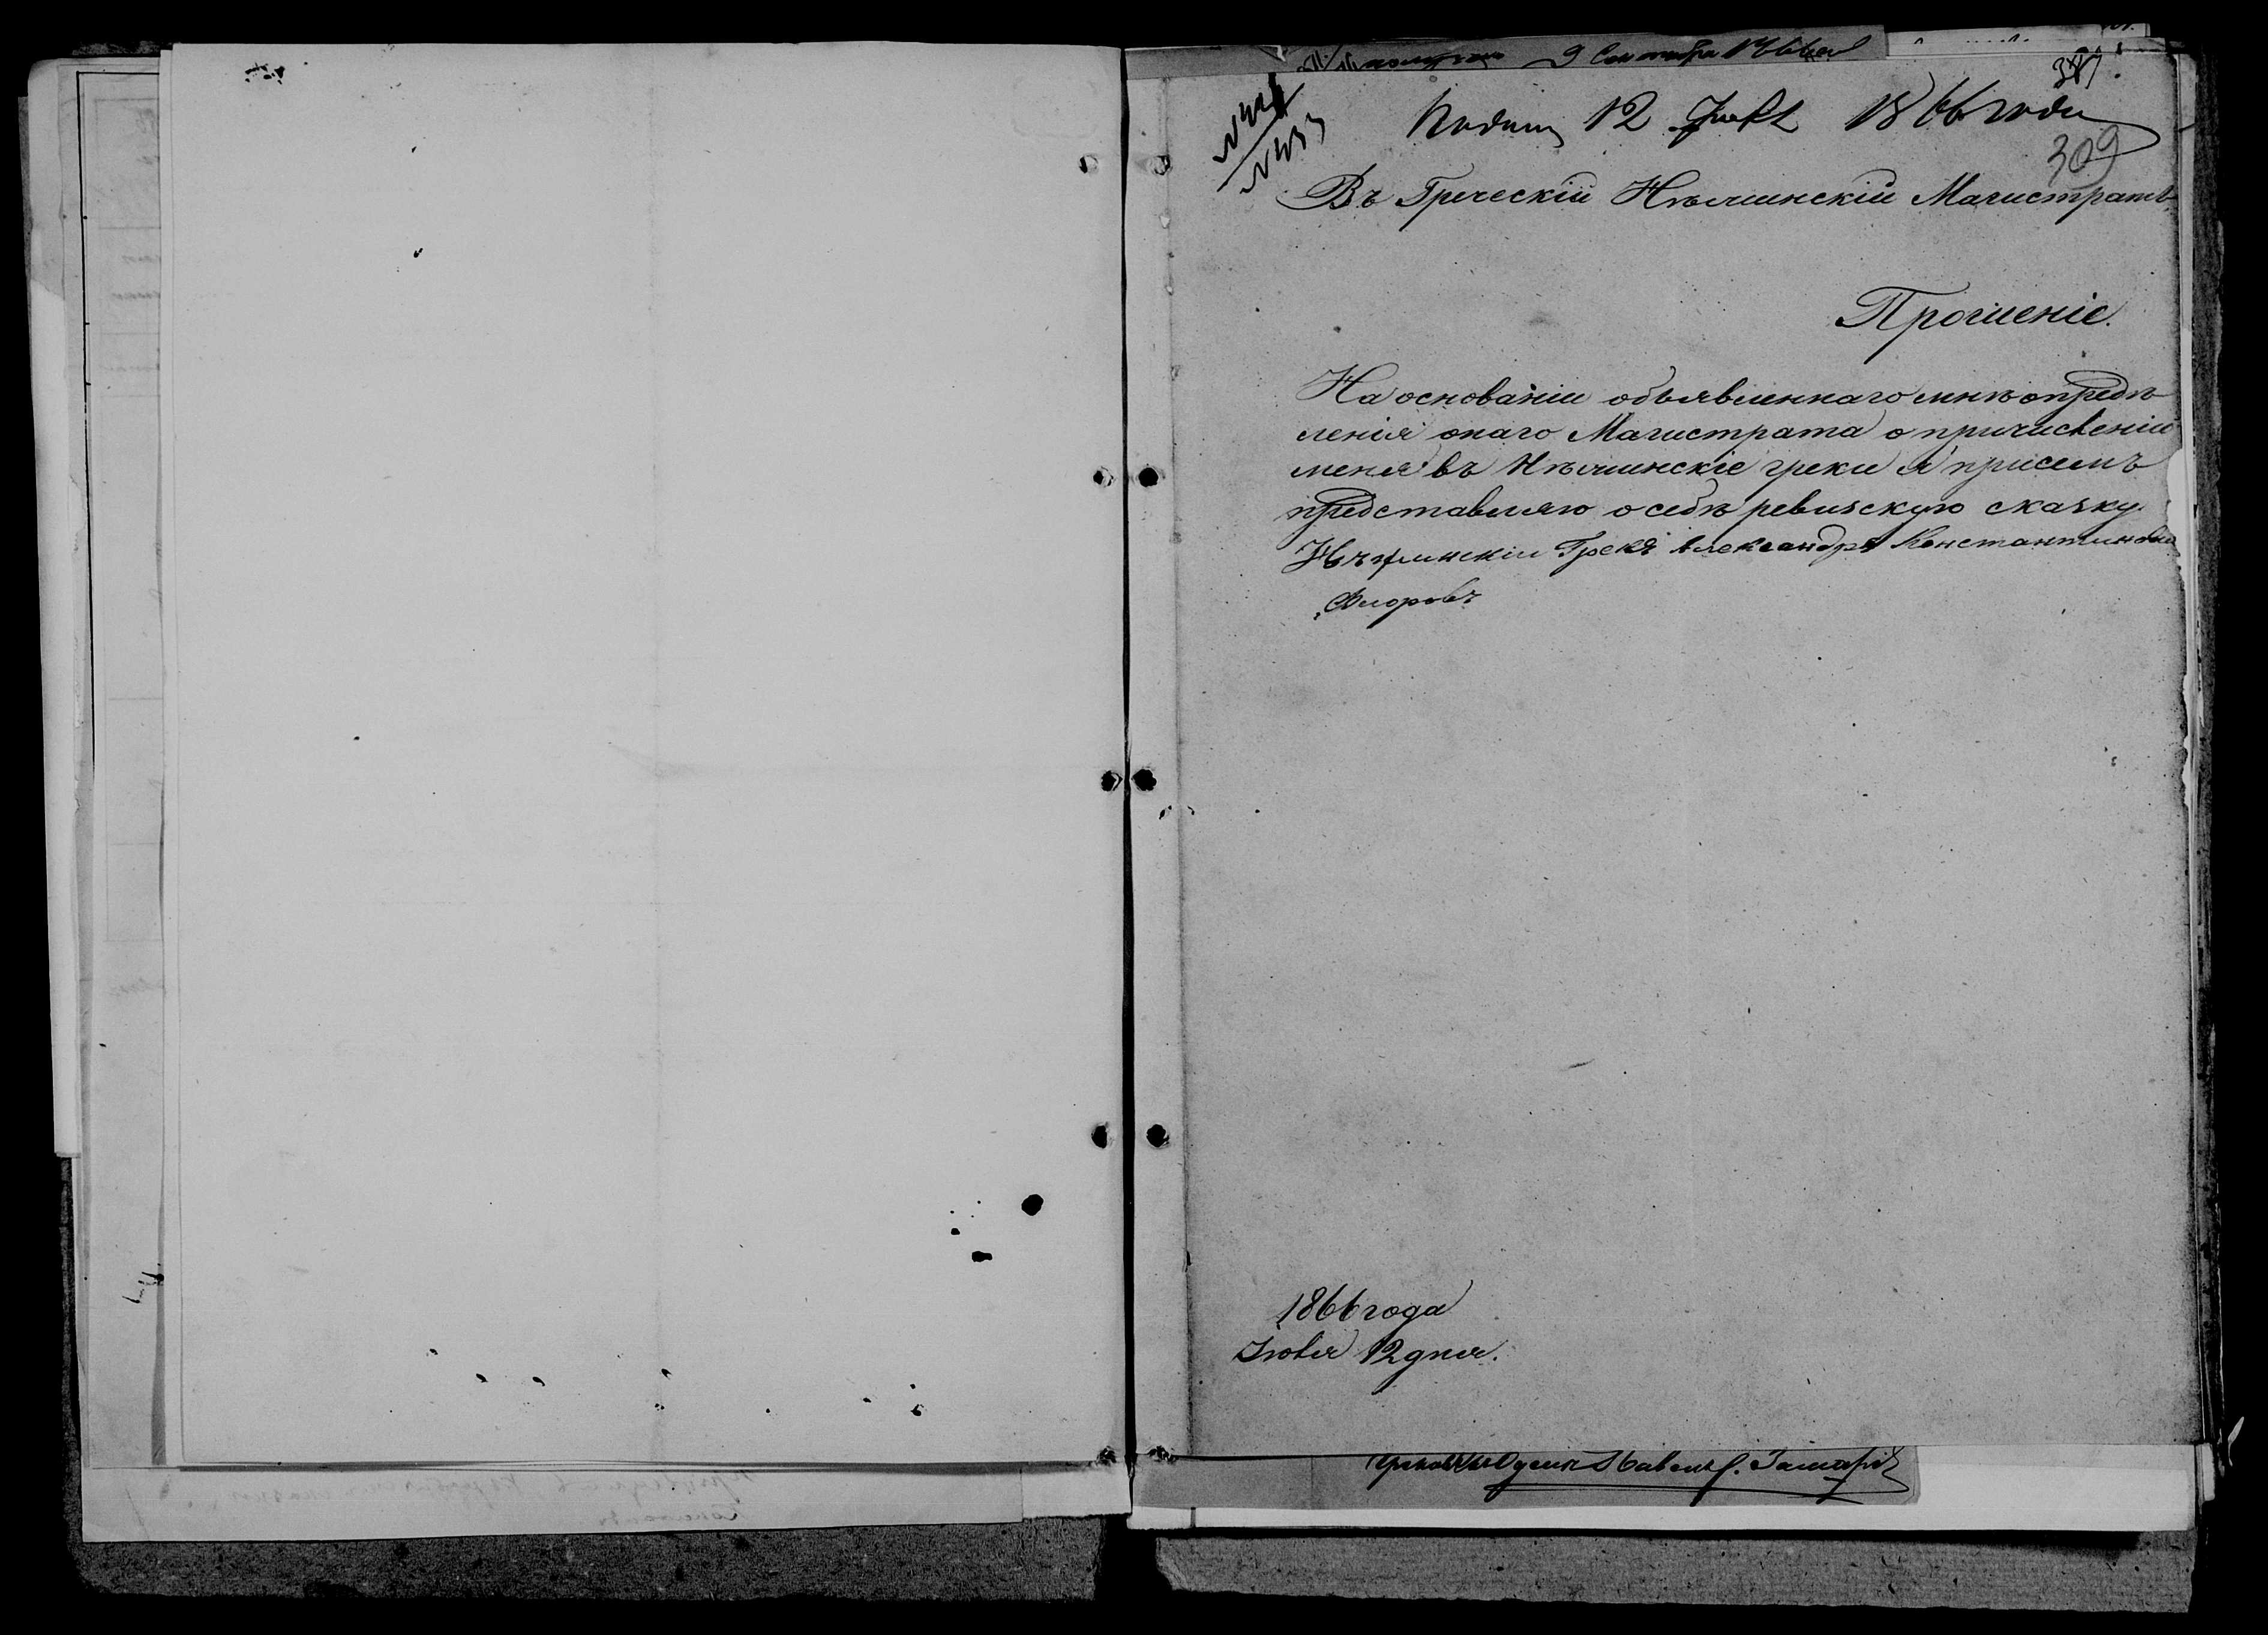 9 Сентября 1866 г
387.
Подано 12 Июля 1866 года
309
Въ Греческій Нѣжинскій Магистратъ
Прошеніе.
На основаніи объявленнаго мнѣ опредѣ
ленія онаго Магистрата о причисленіи
меня въ Нѣжинскіе греки я при семъ
представляю о себѣ ревизскую сказку.
Нѣжинскій Грекъ Александръ Константиновъ
Флоровъ
1866 года
Іюля 12 дня.